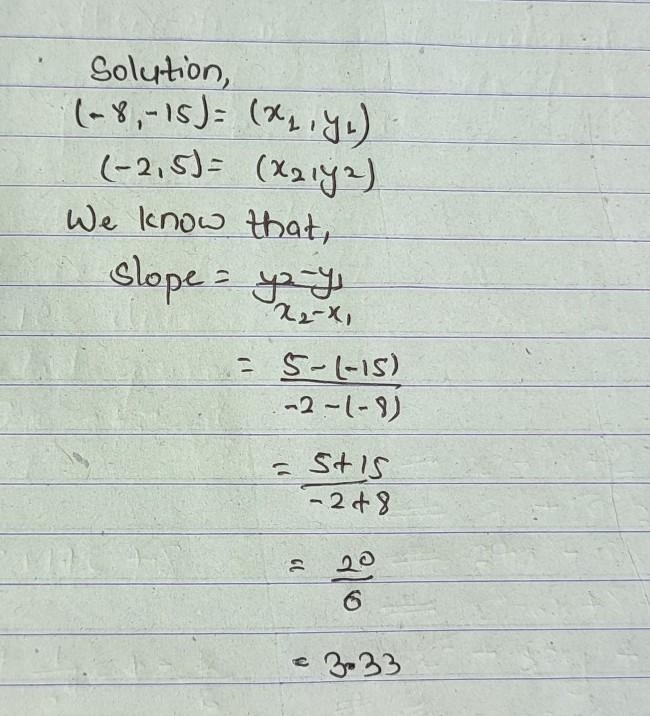 Solution,
(-8,-15)= (x₁,y₁)
(-2,5)= (x₂,y2)
We know that,
Slope = y₂-y₁
x₂-x₁
= 5-(-15)
-2-(-8)
= 5+15
-2+8
= 20
6
= 3.33